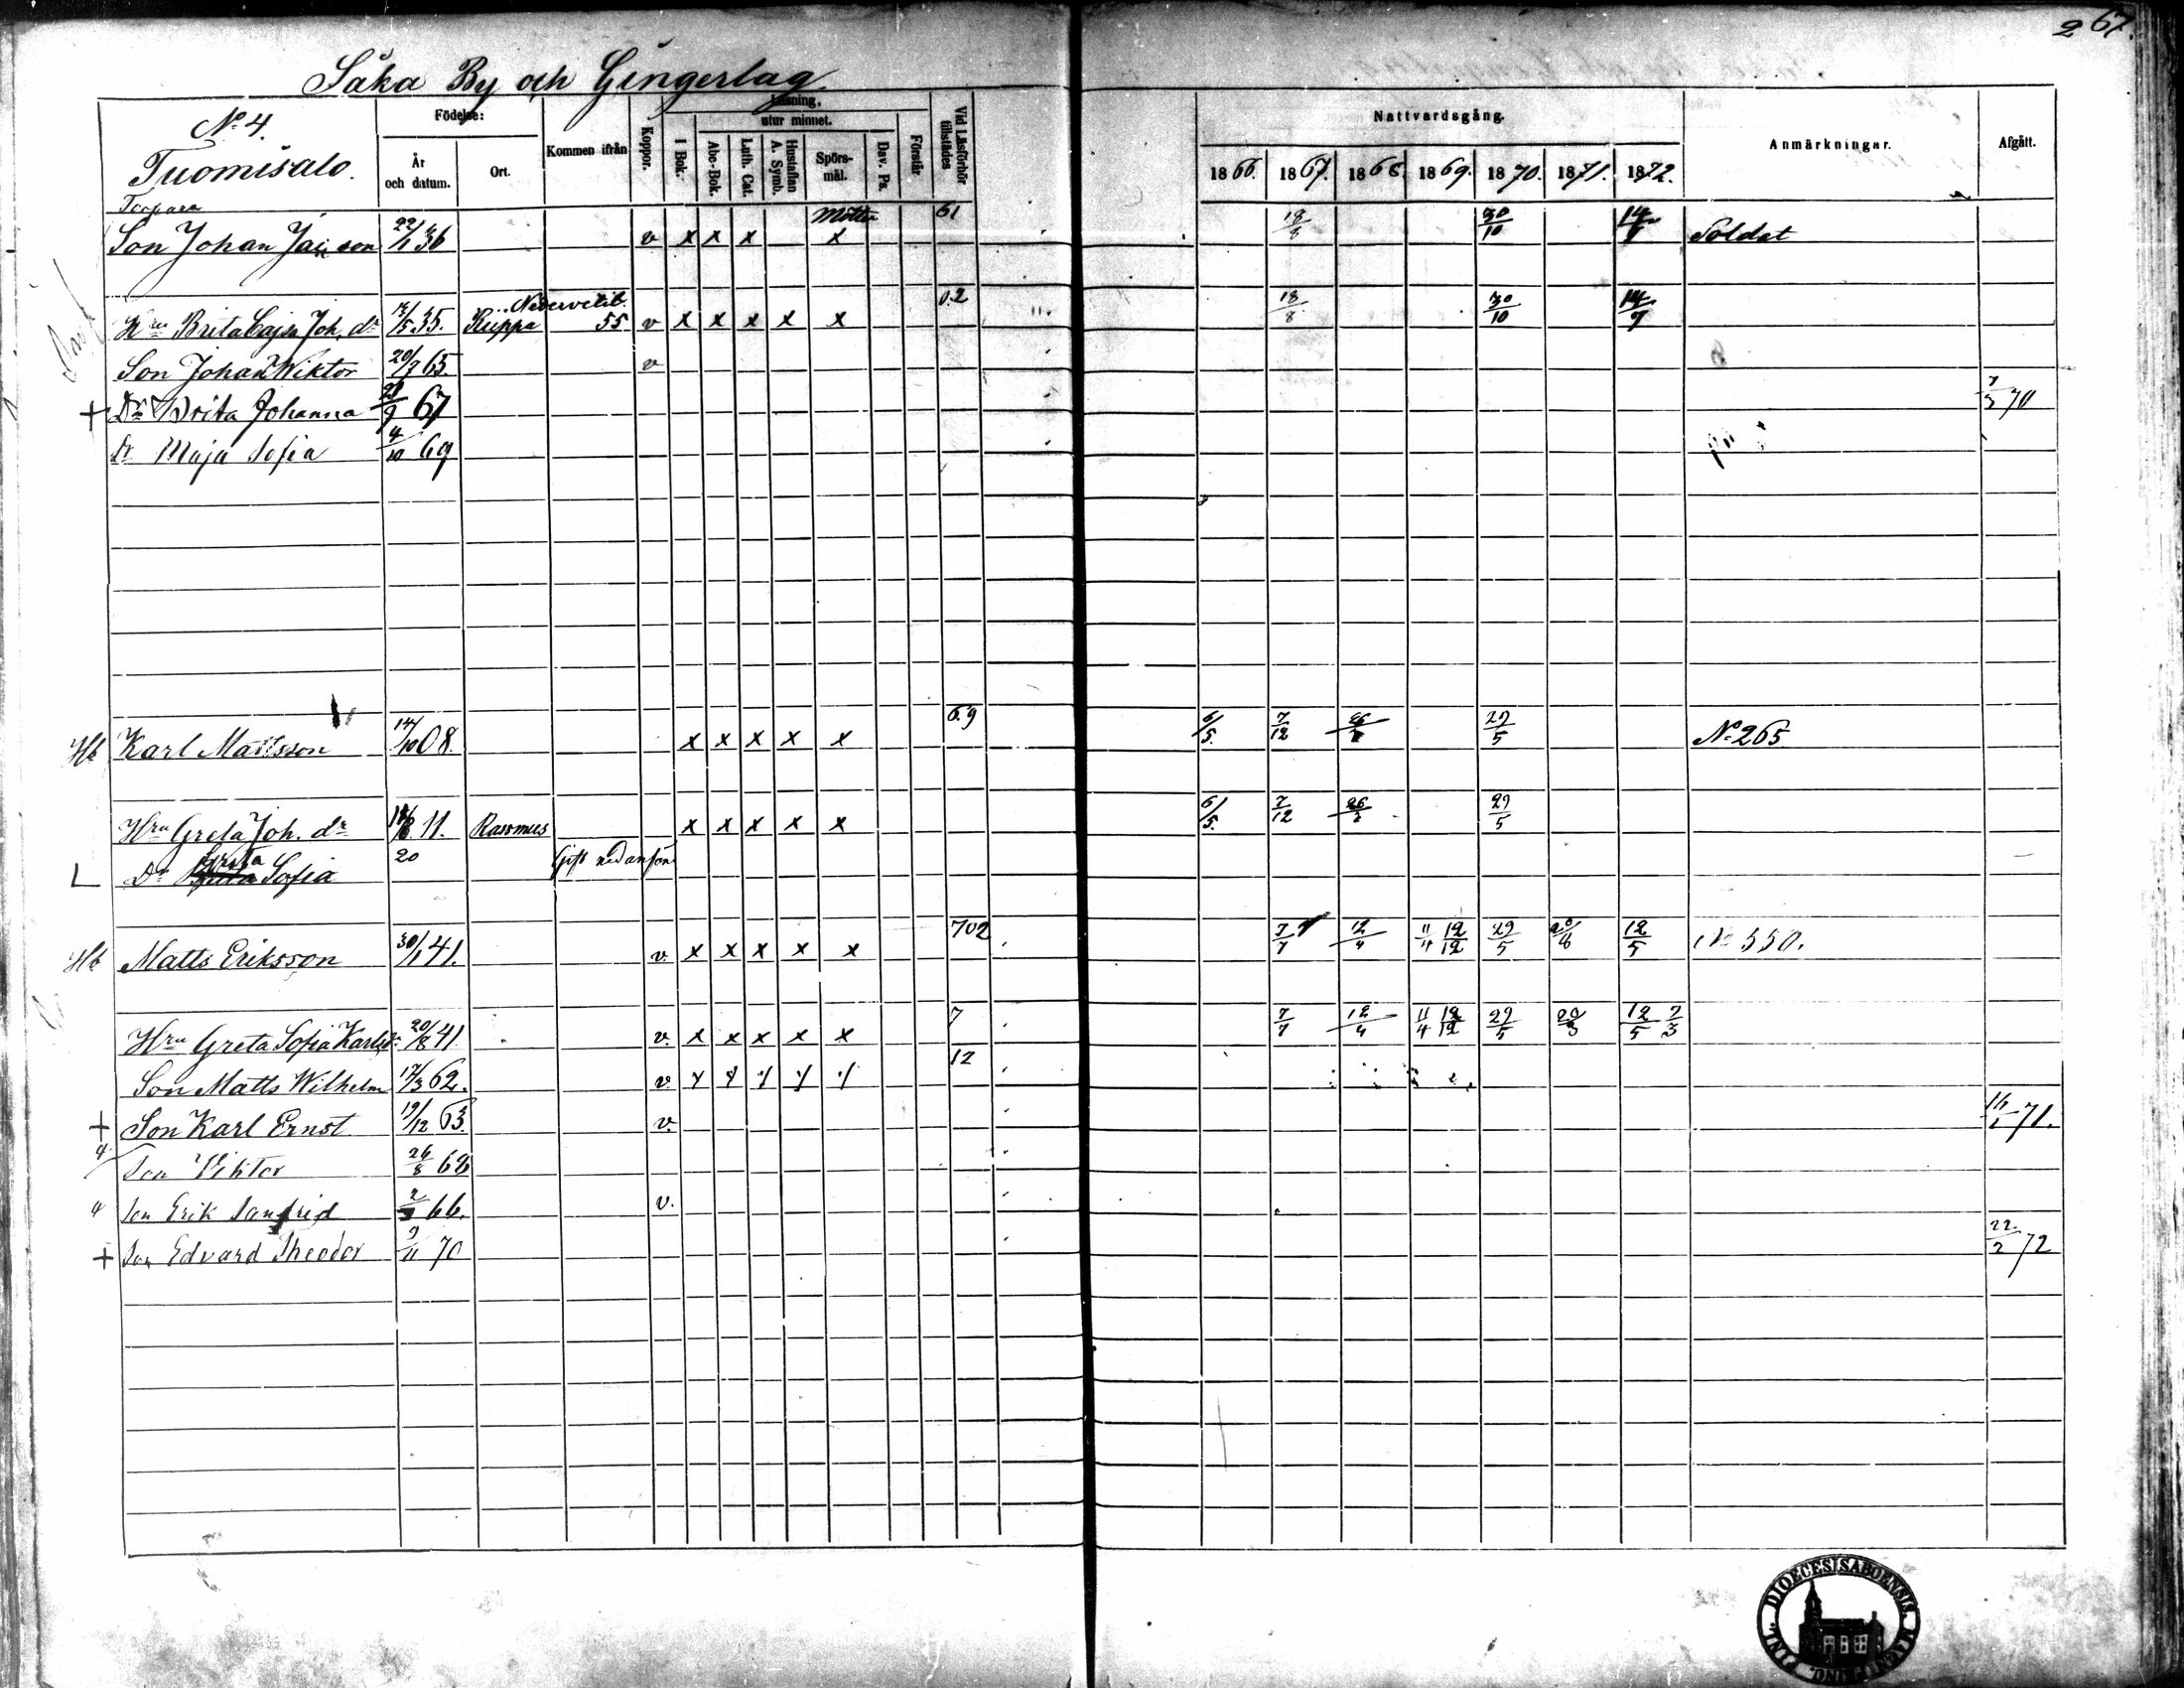 267.
Såka By och Gingerlag
No 4.
Tuomisalo.
Födelse:
År och datum.
Ort.
Kommen ifrån
Koppor.
Läsning,
utur minnet.
I Bok.
Abc-Bok.
Luth. Cat.
Hustaflan A. Symb.
Spörs-mål.
Dav. Ps.
Förstår
Vid Läsförhör tillstädes
Nattvardsgång.
1866. 1867. 1868. 1869. 1870. 1871. 1872.
Anmärkningar.
Afgått.
Torpare
Son Johan Jakson 22/1 36 v x x x x 61 18/8 30/10 14/7 Soldat
Hru Brita Cajsa Joh. dr /5 35. Ruppa Nedervetil. 55 v x x x x x 0.2 18/8 30/10 14/7
Son Johan Wiktor 20/9 65. v
+ Dr Brita Johanna 29/9 67 70
Dr Maja Sofia 4/10 69
Karl Mattsson 14/10 08. x x x x x 6.9 6/5. 7/12 26/ 29/5 No 265
Hru Greta Joh. dr 11. Rassmus x x x x x 6/5. 7/12 26/ 29/5
L Dr Greta Sofia 20 Gift nedanför
Matts Eriksson 30/1 41. v. x x x x x 702 7/7 12/4 11/4 12/12 29/5 12/5 No 550.
Hru Greta Sofia Karls dr 20/8 41. v. x x x x x 7 7/7 12/4 11/4 12/12 29/5 12/5 2/3
Son Matts Wilhelm 17/3 62. v. 12
+ Son Karl Ernst 19/12 63. v. 71.
Son Viktor 26/8 68
Son Erik Sanfrid 2/ 66. v.
+ Son Edvard Theodor 9/11 70 22/2 72
DIOECESIS ABOENSIS. MAGNI PRINC. FINL.